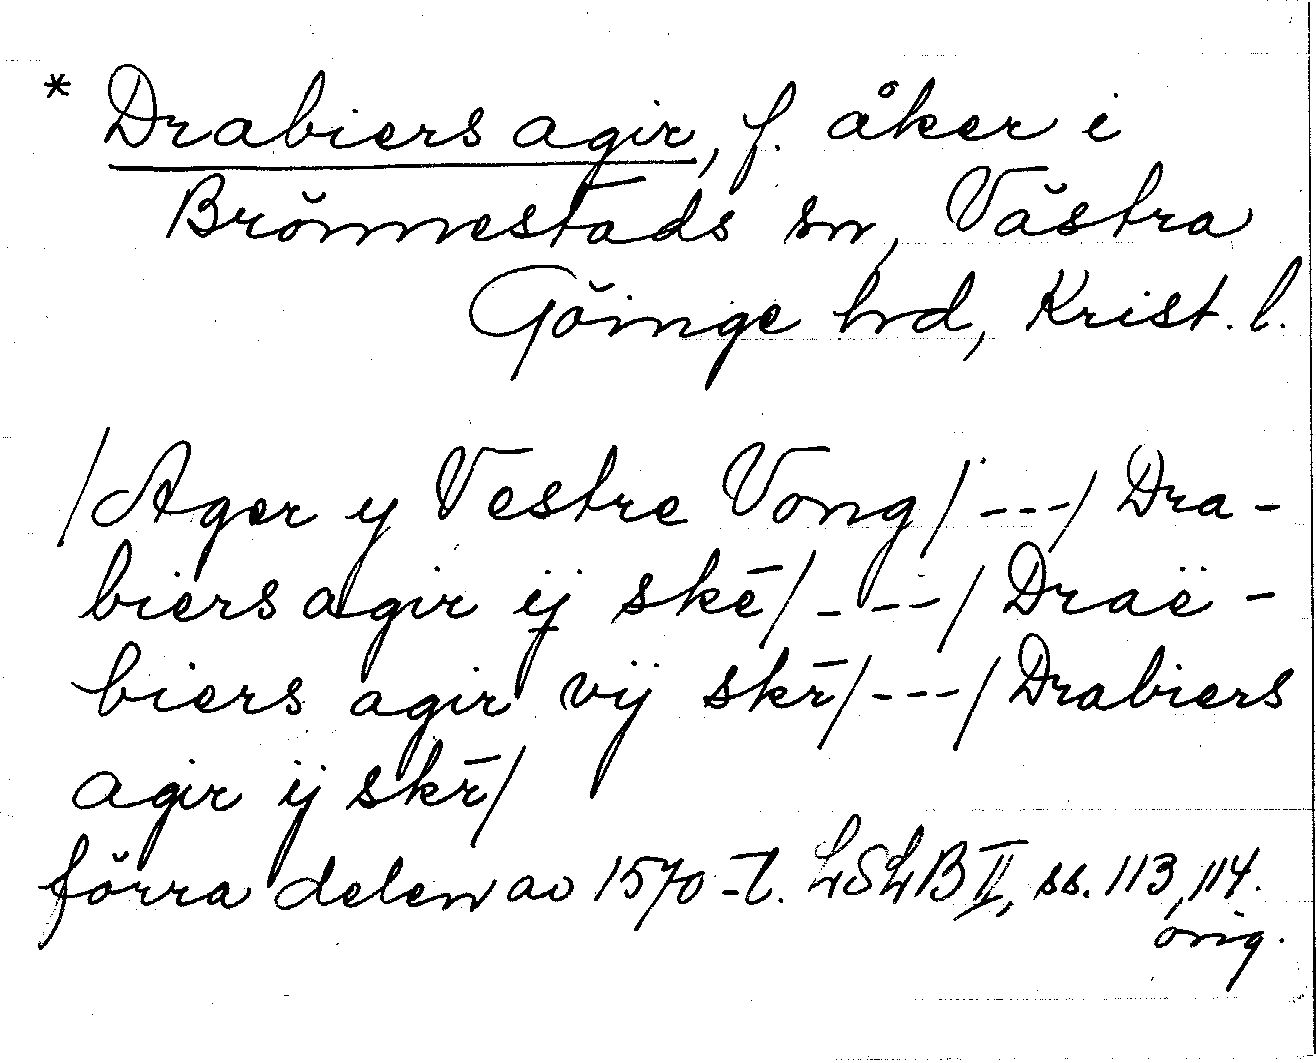 * Drabiers agir, f. åker i
Brönnestads sn, Västra
Göinge hrd, Krist. l.
/Ager y Vestre Vong/ ---/ Dra-
biers agir ij skē/ ---/ Draë-
biers agir vij skr̄/ ---/ Drabiers
agir ij skr̄/
förra delen av 1570-t. LSLB II, ss. 113, 114.
orig.